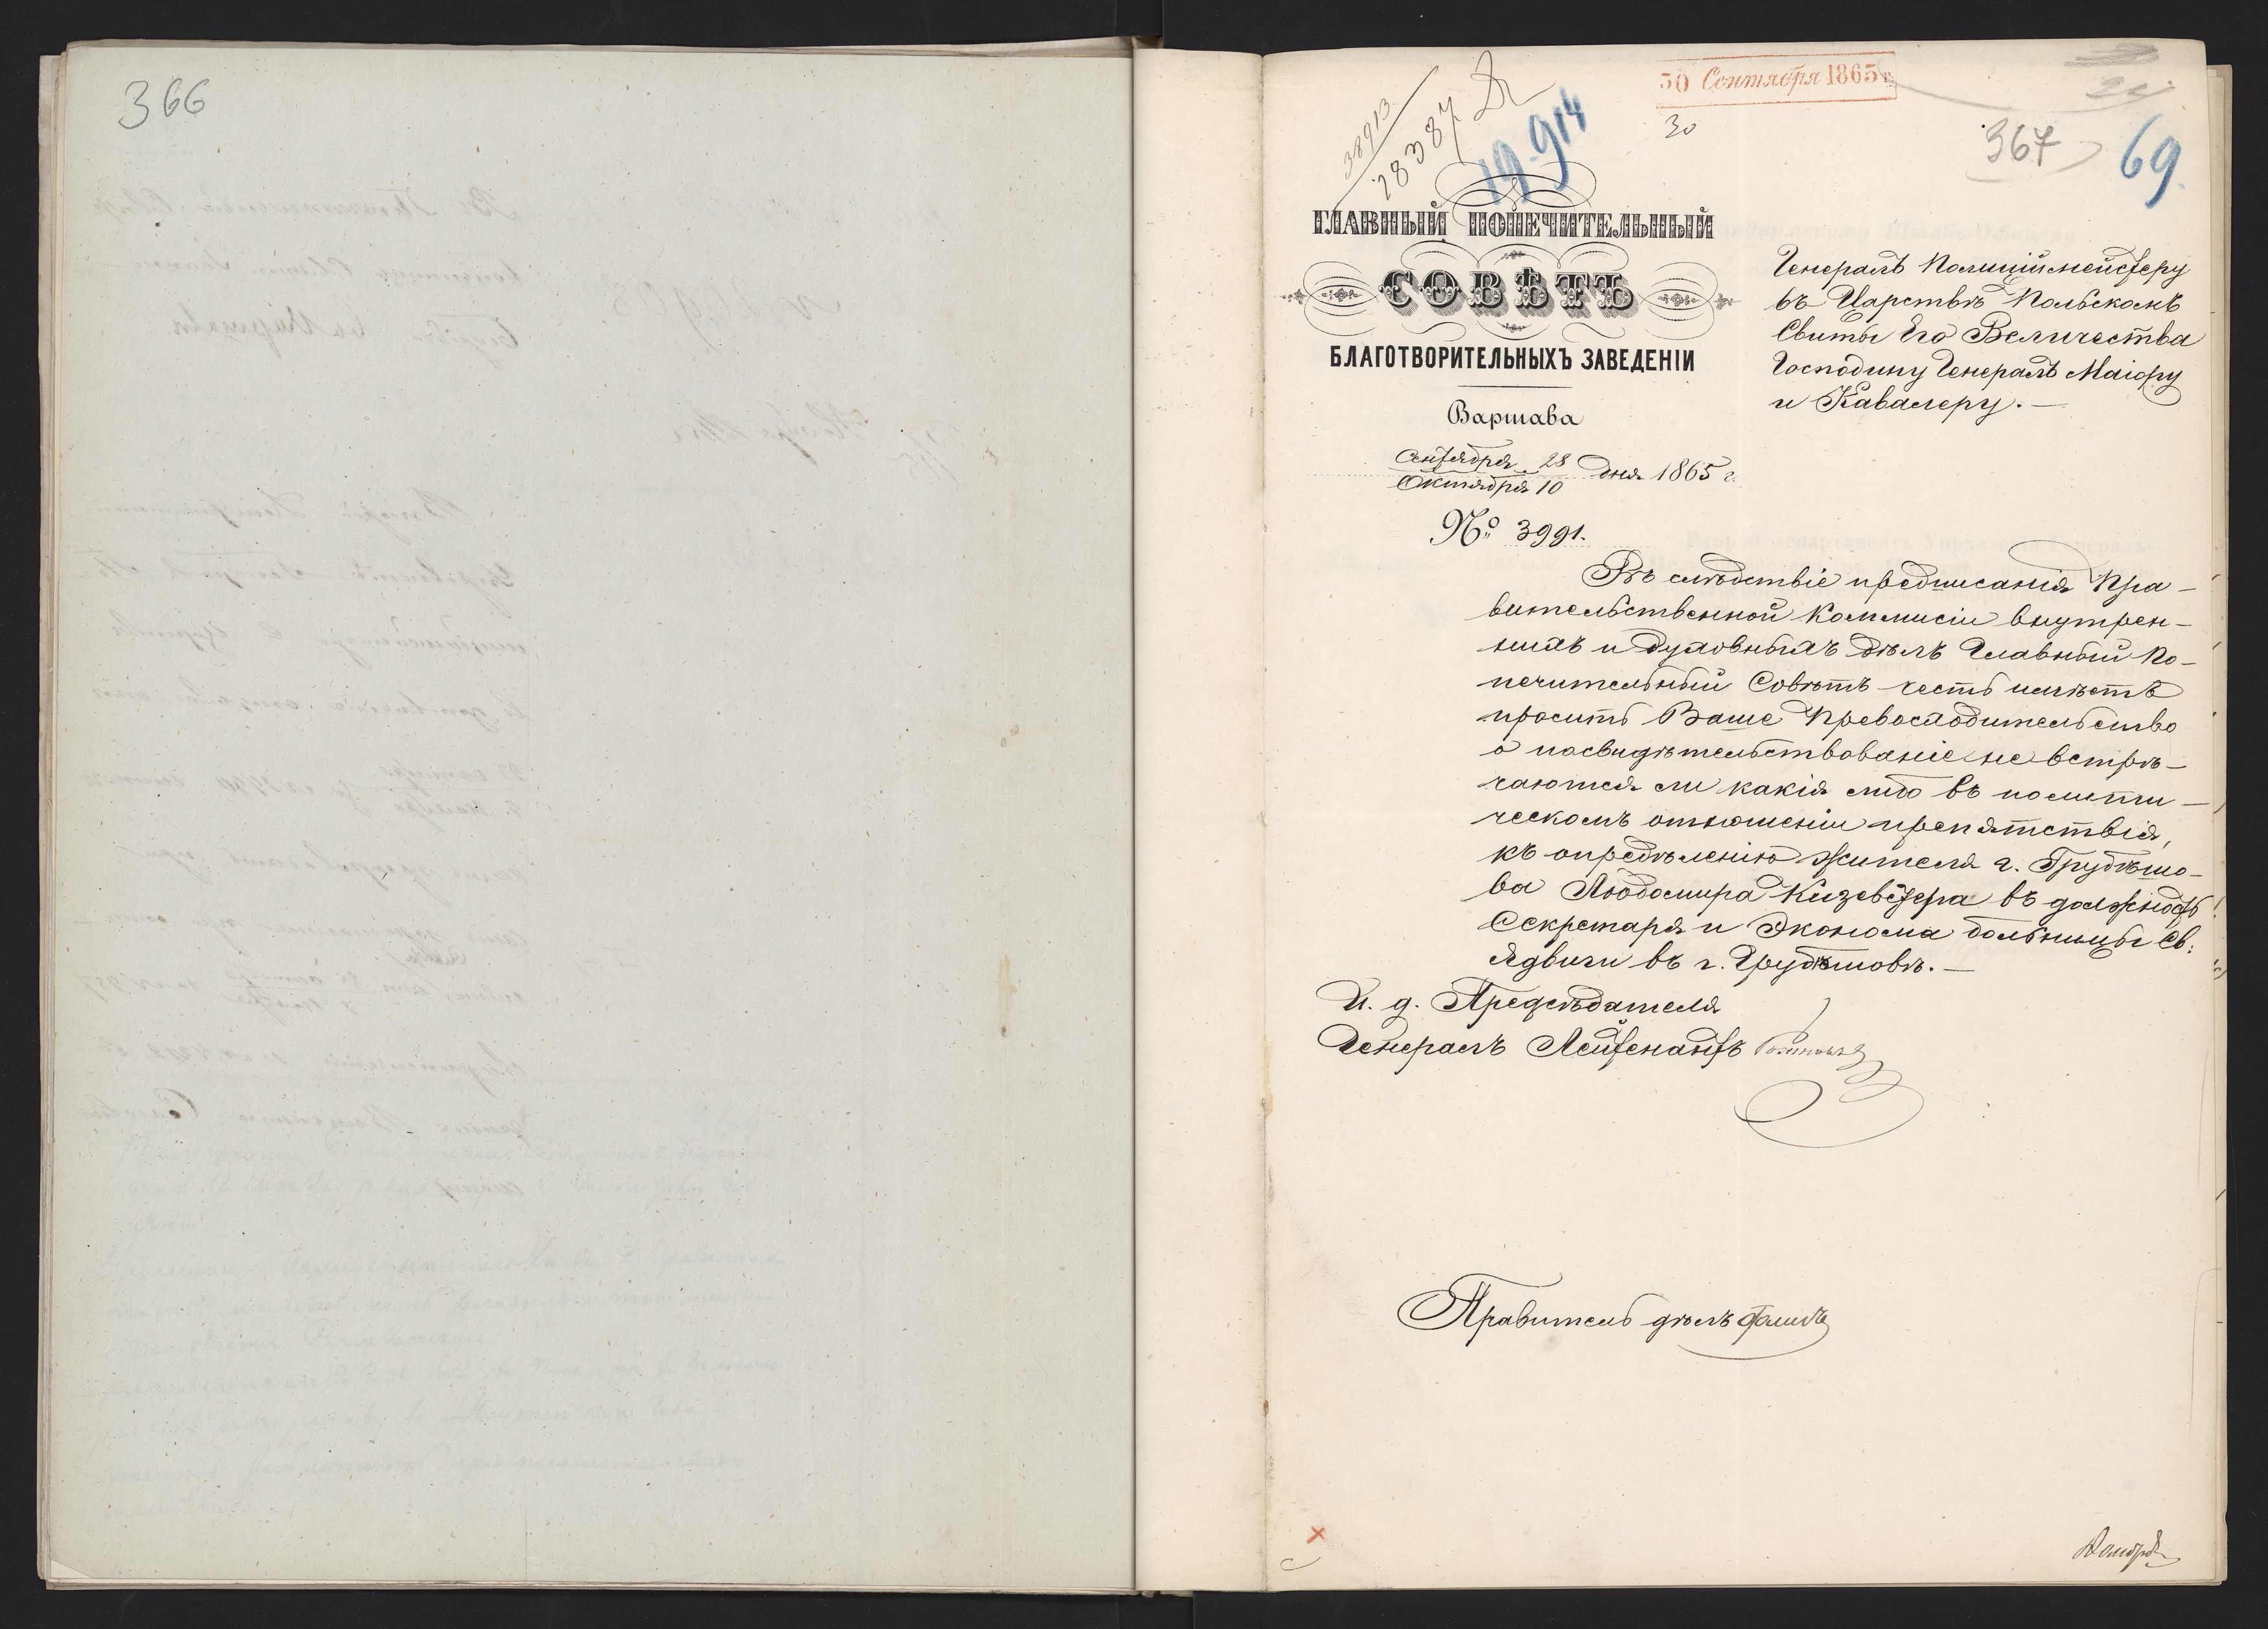 366
30 Сентября 1865 г.
30
38913
28387
19.914
367
69.
ГЛАВНЫЙ ПОПЕЧИТЕЛЬНЫЙ
СОВѢТЪ
БЛАГОТВОРИТЕЛЬНЫХЪ ЗАВЕДЕНІЙ
Варшава
Сентября 28
Октября 10
дня 1865 г.
№ 3991.
Генералъ Полиціймейстеру
въ Царствѣ Польскомъ
Свиты Его Величества
Господину Генералъ Маіору
и Кавалеру. —
Въ слѣдствіе предписанія Пра-
вительственной Коммисіи внутрен-
нихъ и духовныхъ дѣлъ Главный По-
печительный Совѣтъ честь имѣетъ
просить Ваше Превосходительство
о посвидѣтельствованіе не встрѣ-
чаются ли какія либо въ полити-
ческомъ отношеніи препятствія,
къ опредѣленію жителя г. Грубѣшо-
ва Любомира Кизеветера въ должность
Секретаря и Эконома больницы Св.
Ядвиги въ г. Грубѣшовѣ. —
И. д. Предсѣдателя
Генералъ Лейтенантъ
Правитель дѣлъ